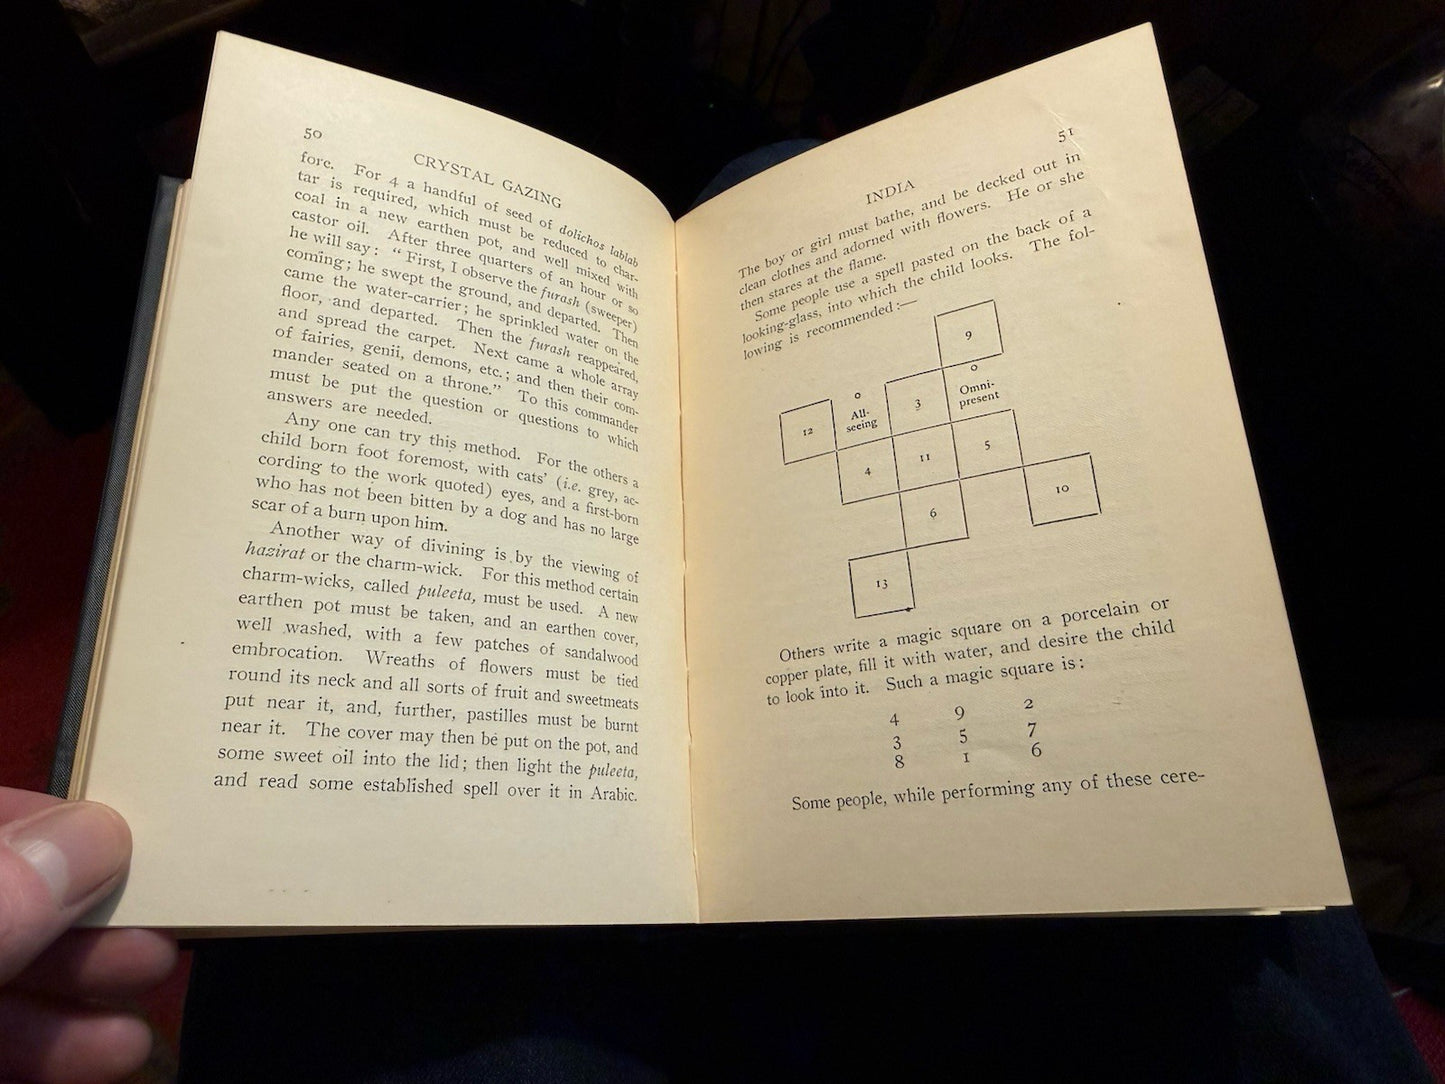 50
CRYSTAL GAZING
fore. For 4 a handful of seed of dolichos lablab
tar is required, which must be reduced to char-
coal in a new earthen pot, and well mixed with
castor oil. After three quarters of an hour or so
he will say: “First, I observe the furash (sweeper)
coming; he swept the ground, and departed. Then
came the water-carrier; he sprinkled water on the
floor, and departed. Then the furash reappeared,
and spread the carpet. Next came a whole array
of fairies, genii, demons, etc.; and then their com-
mander seated on a throne.” To this commander
must be put the question or questions to which
answers are needed.
Any one can try this method. For the others a
child born foot foremost, with cats’ (i.e. grey, ac-
cording to the work quoted) eyes, and a first-born
who has not been bitten by a dog and has no large
scar of a burn upon him.
Another way of divining is by the viewing of
hazirat or the charm-wick. For this method certain
charm-wicks, called puleeta, must be used. A new
earthen pot must be taken, and an earthen cover,
well washed, with a few patches of sandalwood
embrocation. Wreaths of flowers must be tied
round its neck and all sorts of fruit and sweetmeats
put near it, and, further, pastilles must be burnt
near it. The cover may then be put on the pot, and
some sweet oil into the lid; then light the puleeta,
and read some established spell over it in Arabic.
51
INDIA
The boy or girl must bathe, and be decked out in
clean clothes and adorned with flowers. He or she
then stares at the flame.
Some people use a spell pasted on the back of a
looking-glass, into which the child looks. The fol-
lowing is recommended:—
9
12
o
All-
seeing
3
o
Omni-
present
4
11
5
6
10
13
Others write a magic square on a porcelain or
copper plate, fill it with water, and desire the child
to look into it. Such a magic square is:
4 9 2
3 5 7
8 1 6
Some people, while performing any of these cere-